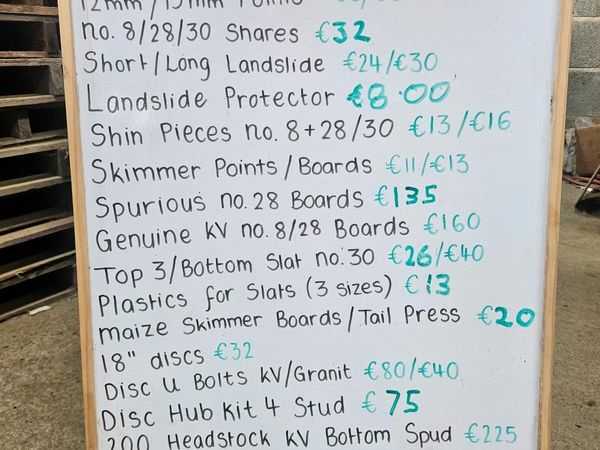 12mm/15mm Points
no. 8/28/30 Shares €32
Short/Long Landslide €24/€30
Landslide Protector €8.00
Shin Pieces no. 8+28/30 €13/€16
Skimmer Points/Boards €11/€13
Spurious no. 28 Boards €135
Genuine KV no. 8/28 Boards €160
Top 3/Bottom Slat no. 30 €26/€40
Plastics for Slats (3 sizes) €13
maize Skimmer Boards/Tail Press €20
18" discs €32
Disc U Bolts KV/Granit €80/€40
Disc Hub Kit 4 Stud €75
200 Headstock KV Bottom Spud €225